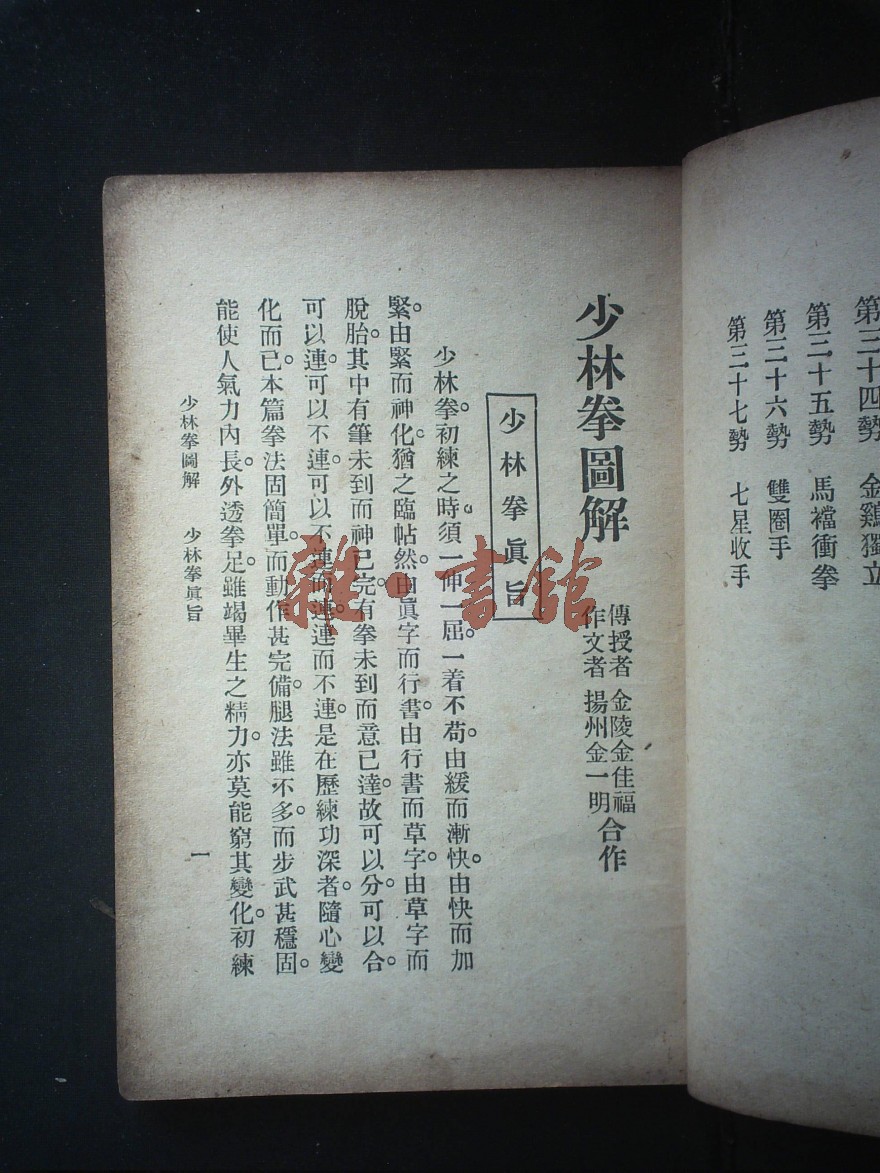 第三十四勢　金鷄獨立
第三十五勢　馬襠衝拳
第三十六勢　雙圈手
第三十七勢　七星收手
少林拳圖解
傳授者　金陵金佳福
作文者　揚州金一明
合作
少林拳眞旨
少林拳。初練之時。須一伸一屈。一着不苟。由緩而漸快。由快而加
緊。由緊而神化。猶之臨帖然。由眞字而行書。由行書而草字。由草字而
脫胎。其中有筆未到而神已完。有拳未到而意已達。故可以分。可以合。
可以連。可以不連。可以不連而連。連而不連。是在歷練功深者。隨心變
化而已。本篇拳法固簡單。而動作甚完備。腿法雖不多。而步武甚穩固。
能使人氣力內長。外透拳足。雖竭畢生之精力。亦莫能窮其變化。初練
少林拳圖解　少林拳眞旨
一
雜·書館